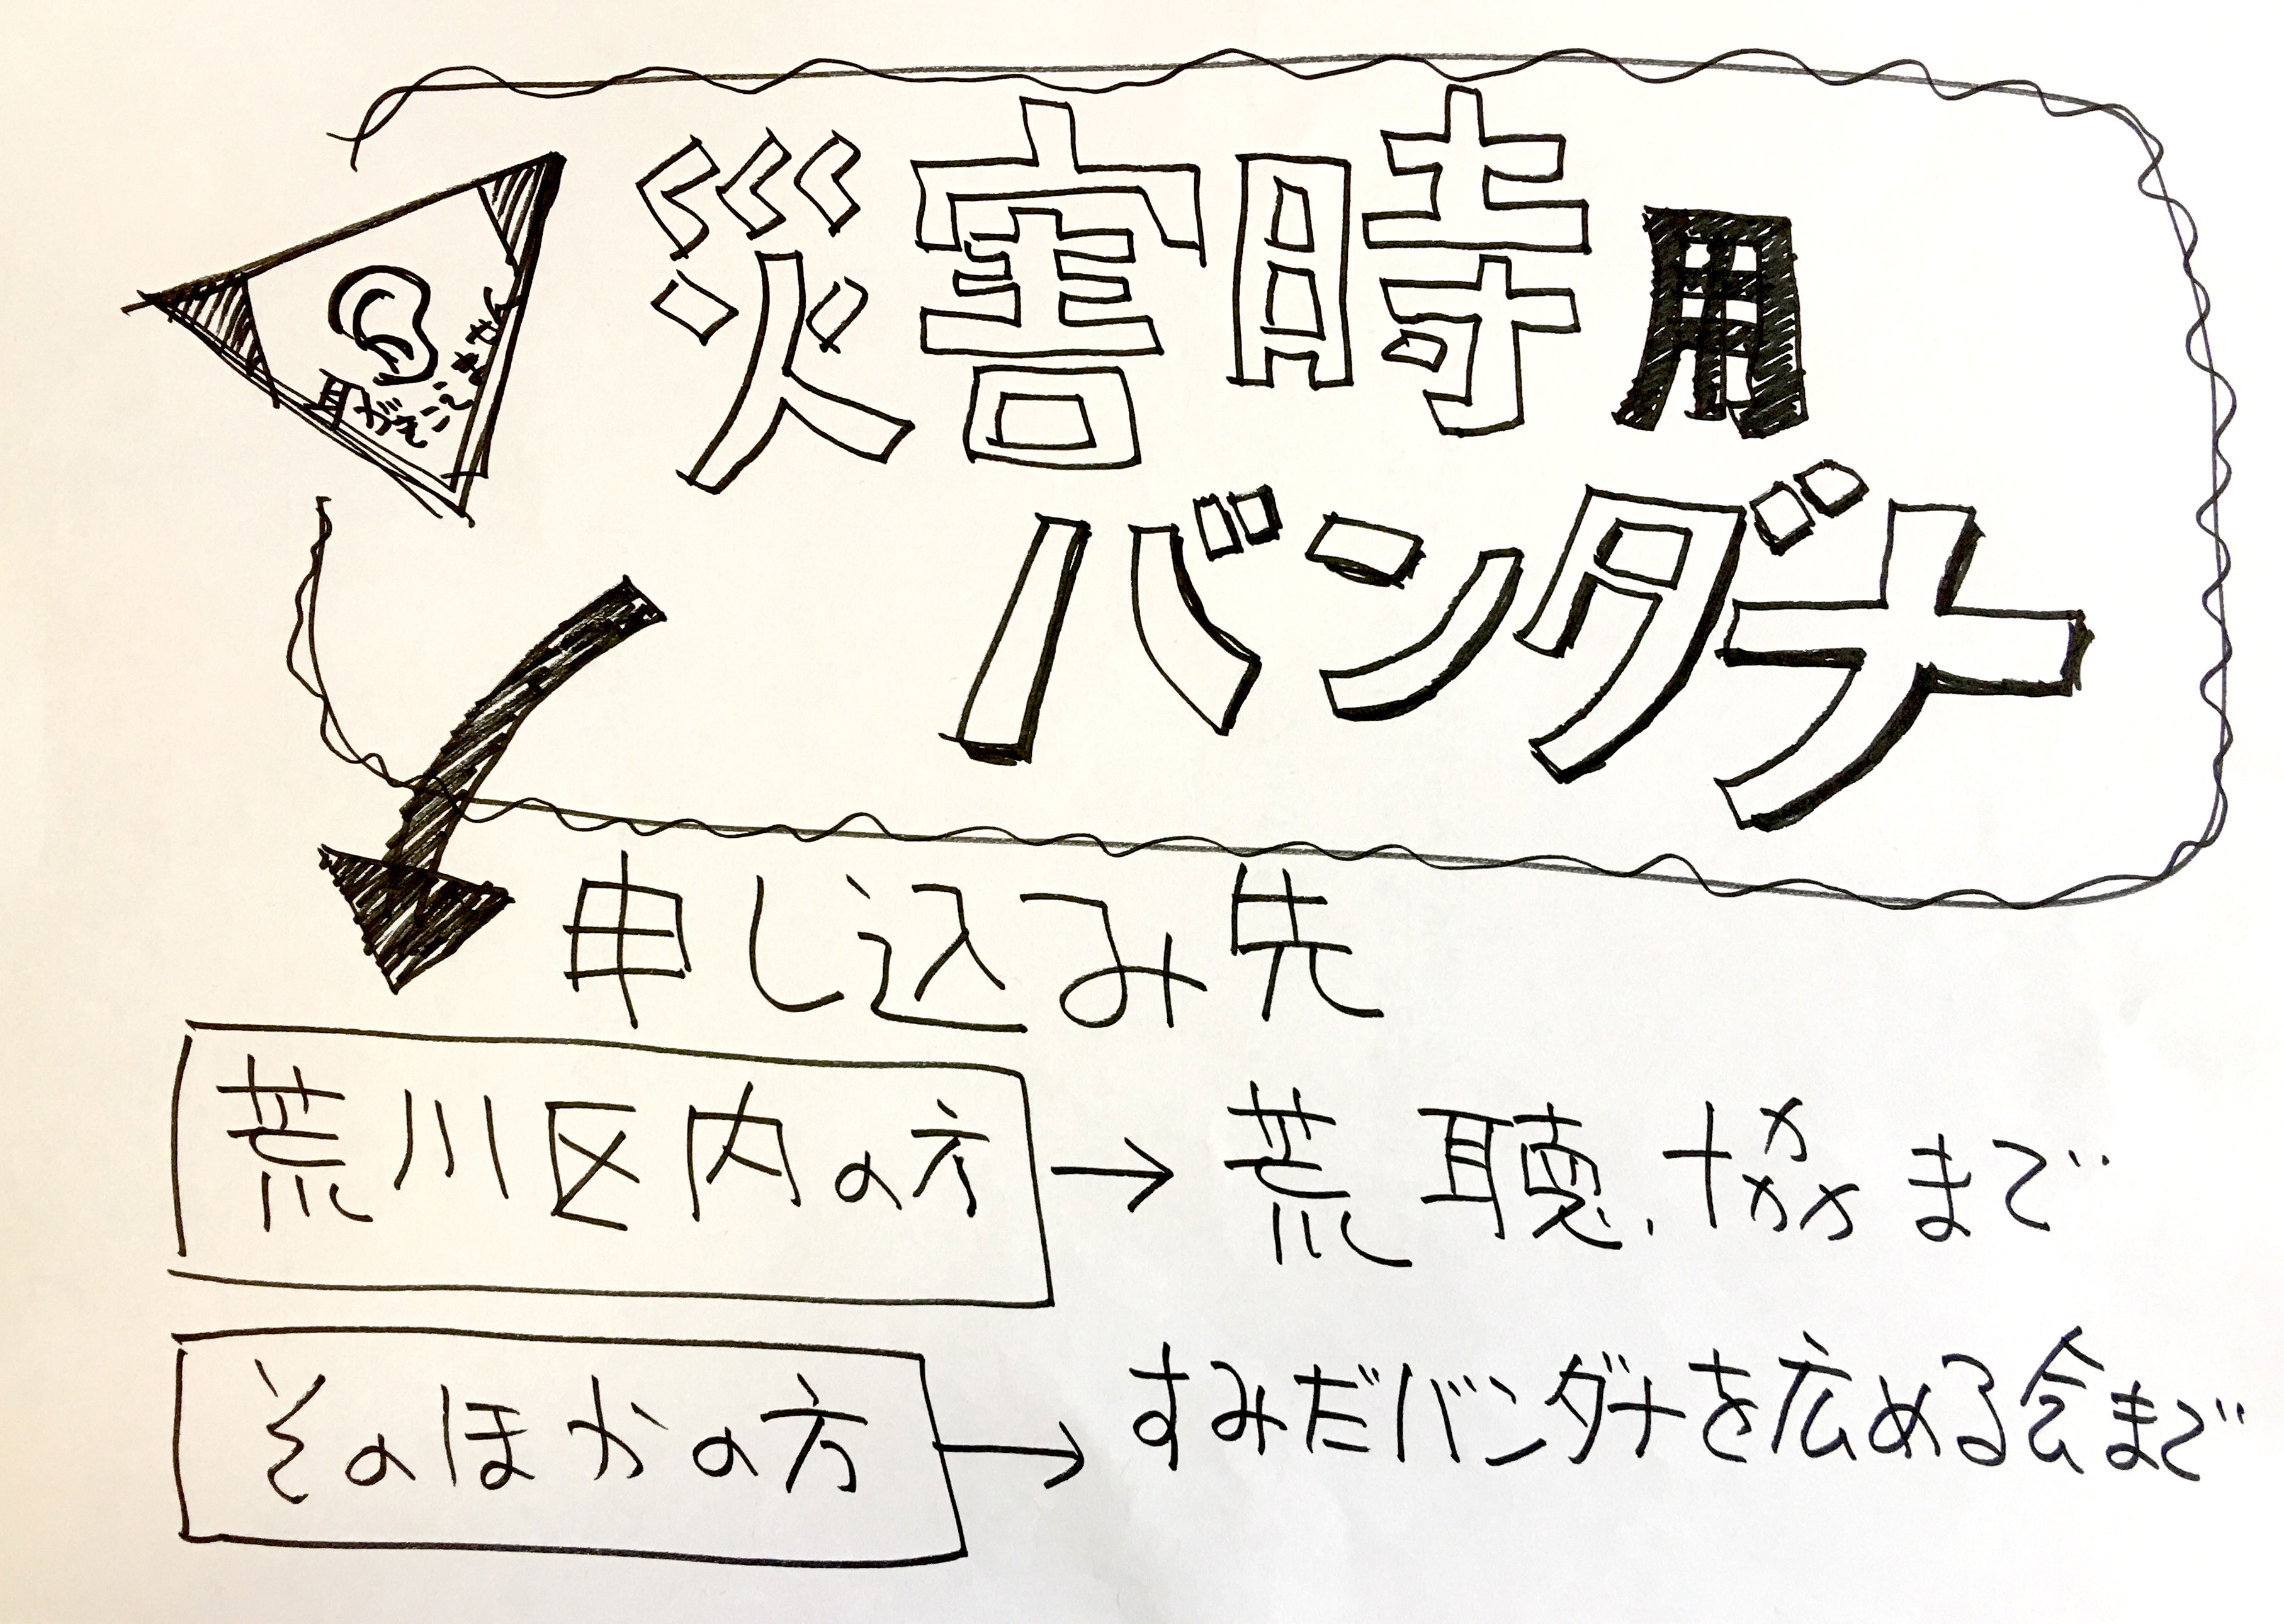 災害時用
バンダナ
耳が
申し込み先
荒川区内の方 → 荒聴.協まで
そのほかの方 → すみだバンダナを広める会まで